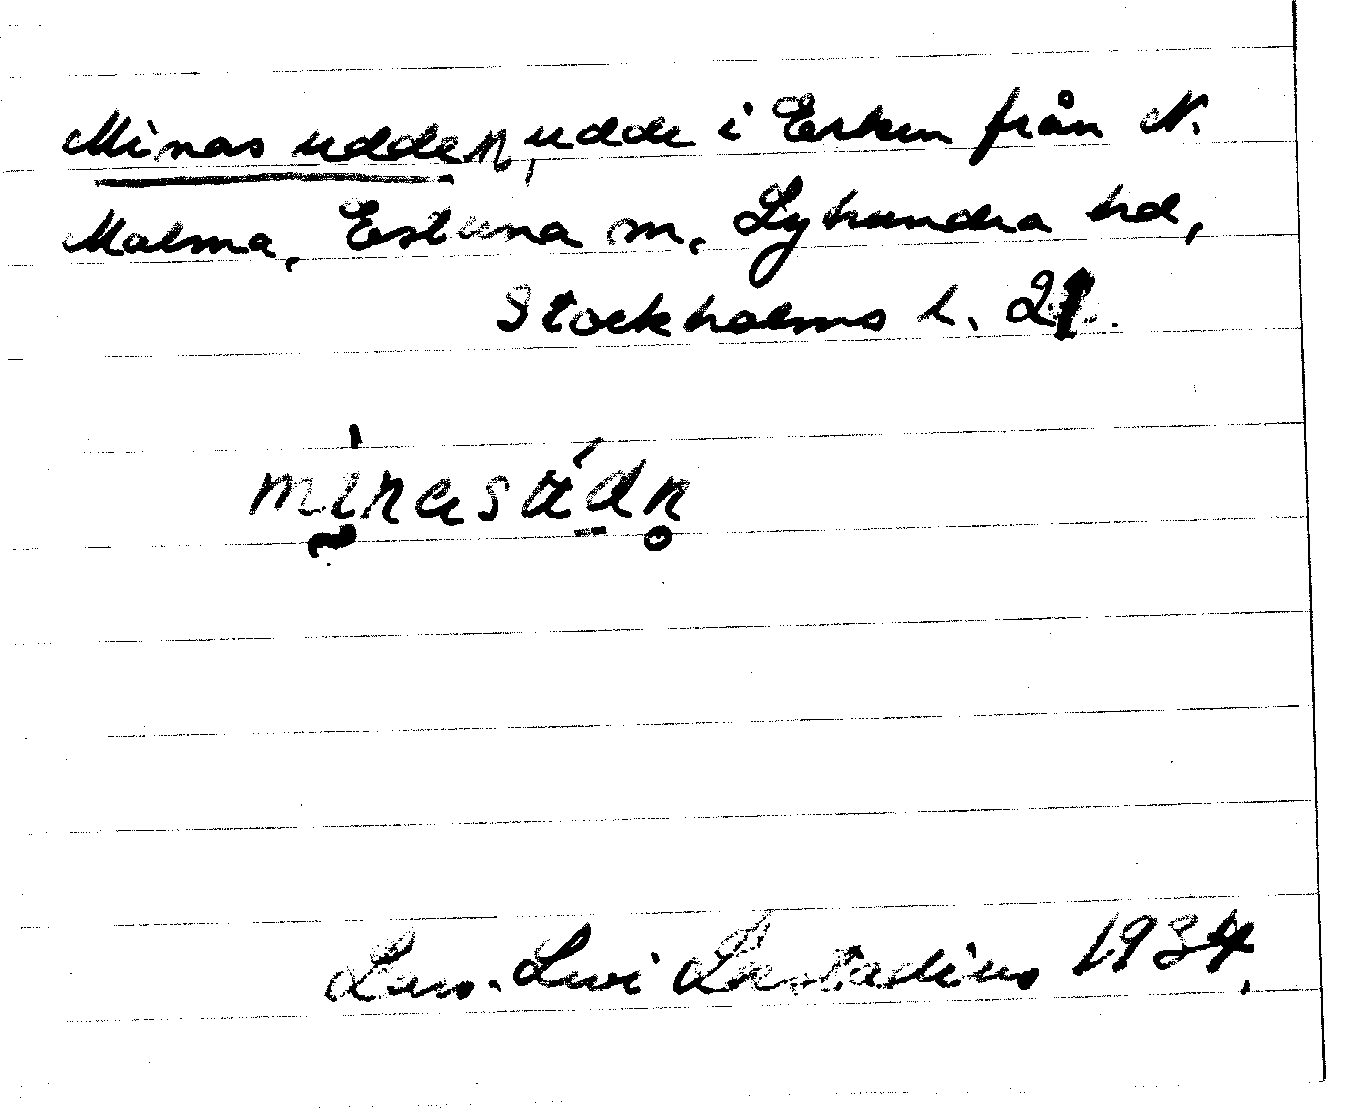 Minas udden, udde i Erken från N.
Malma, Estuna sn, Lyhundra hd,
Stockholms l. 21.
mìnasúdn̥
Lars-Levi Læstadius 1934.